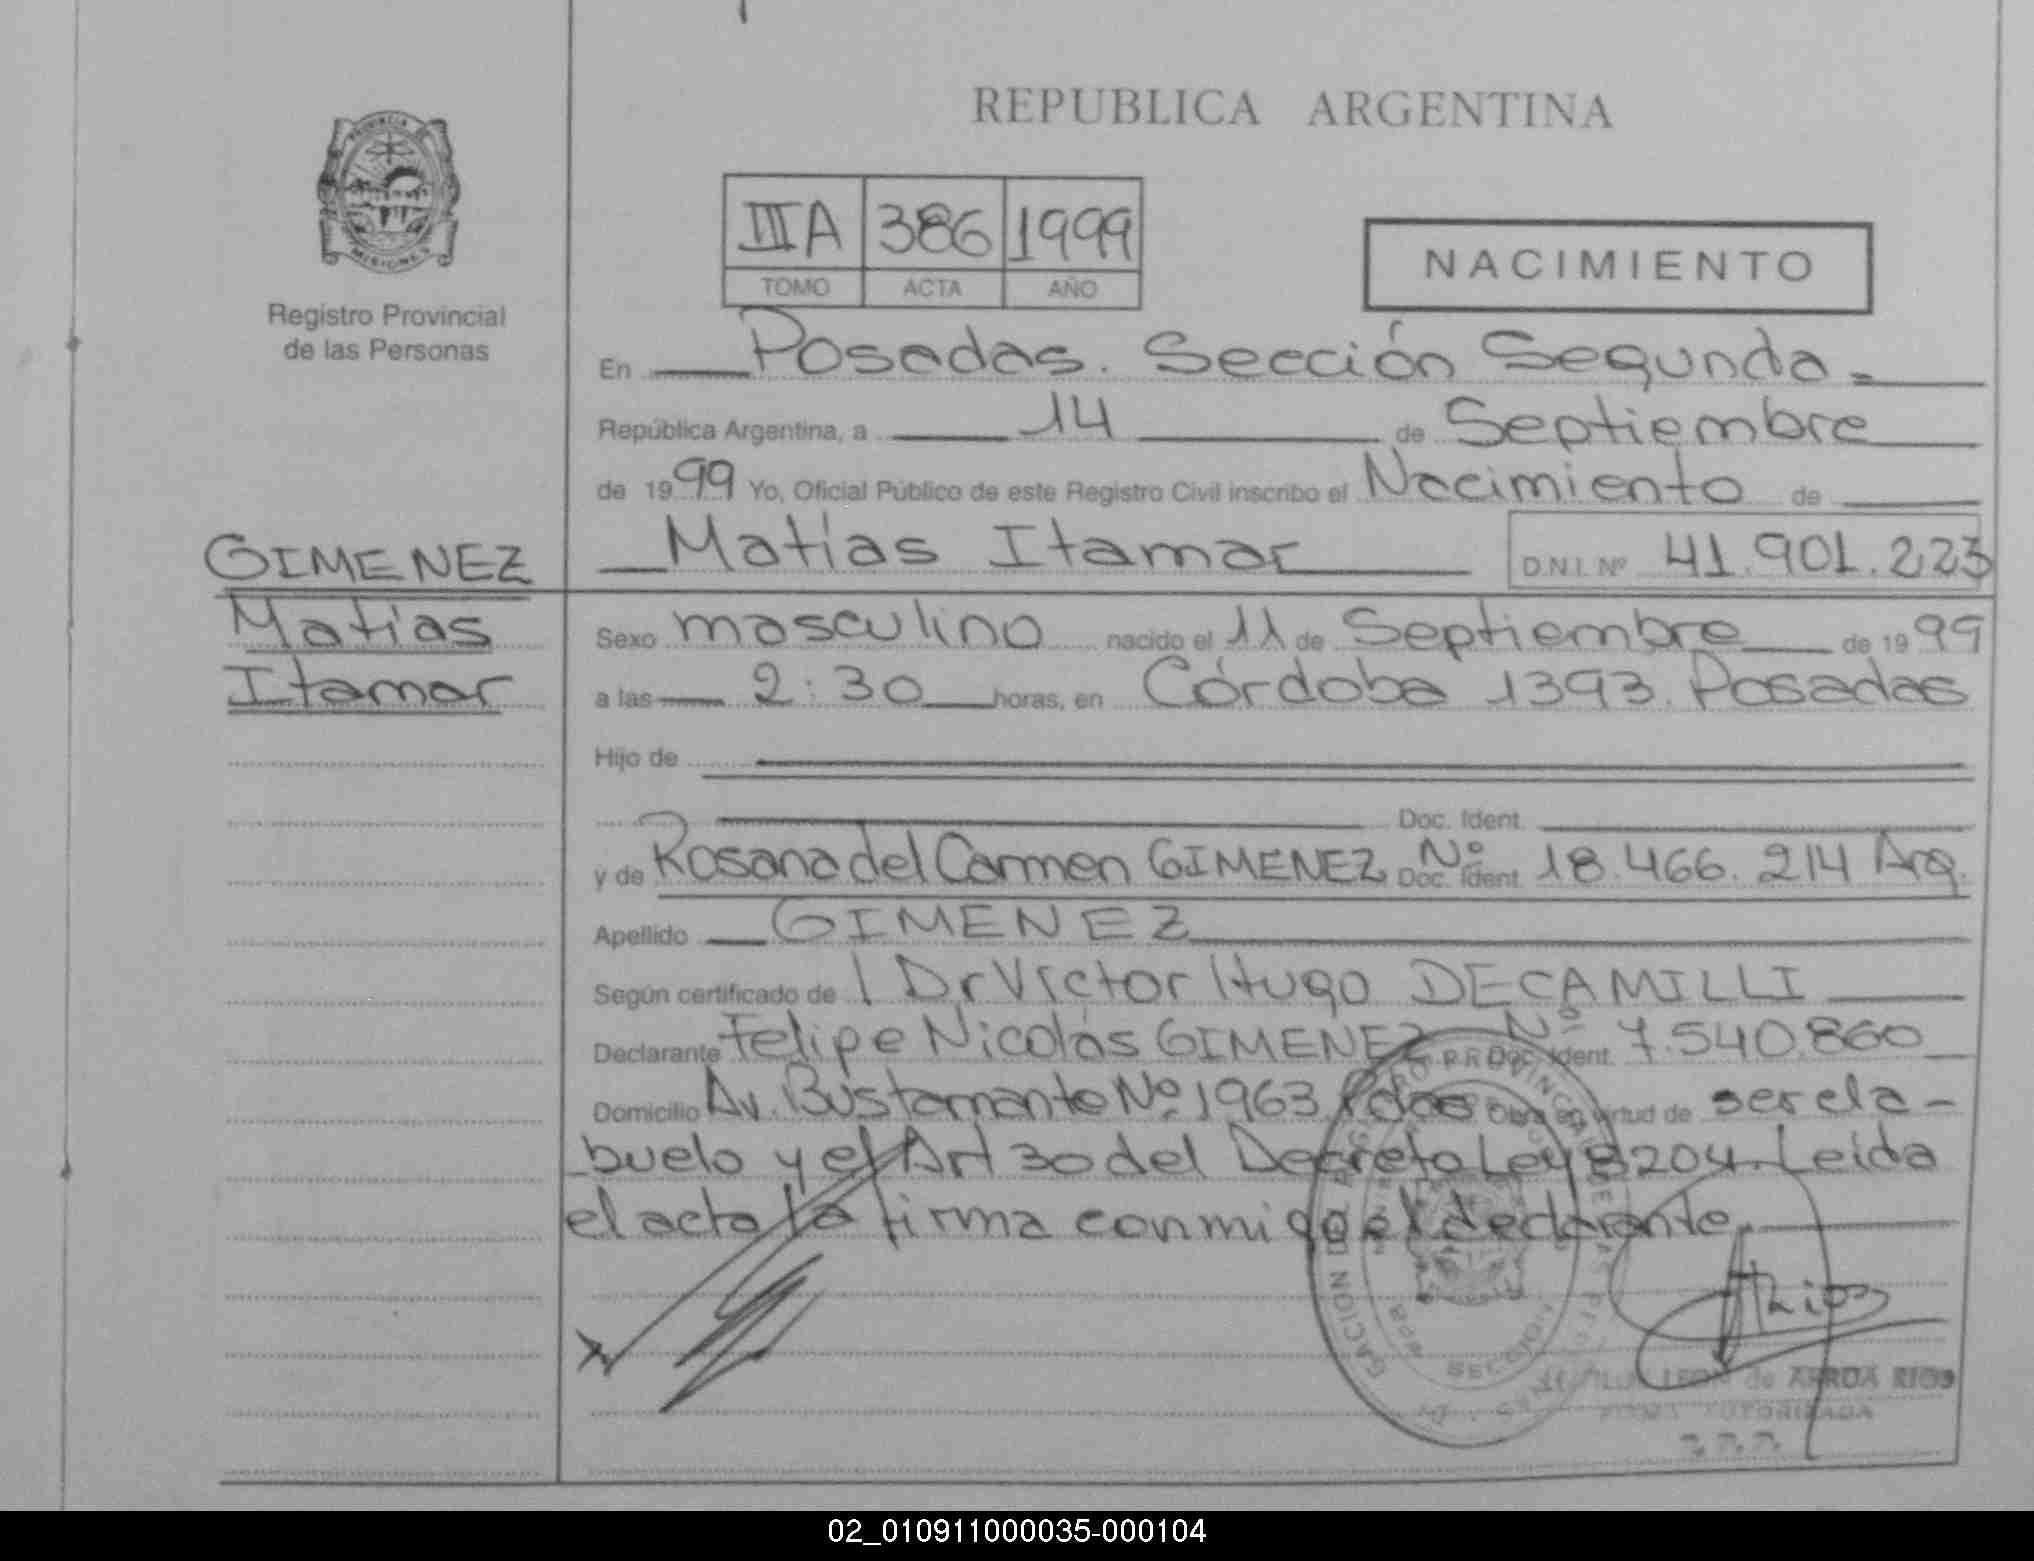 REPUBLICA ARGENTINA
PROVINCIA DE MISIONES
Registro Provincial
de las Personas
IIIA 386 1999
TOMO ACTA AÑO
NACIMIENTO
En Posadas. Sección Segunda.
República Argentina, a 14 de Septiembre
de 1999 Yo, Oficial Público de este Registro Civil inscribo el Nacimiento de
GIMENEZ
Matías Itamar D.N.I. Nº 41.901.223
Matías
Sexo masculino nacido el 11 de Septiembre de 1999
Itamar
a las 2:30 horas, en Córdoba 1393. Posadas
Hijo de
Doc. Ident.
y de Rosana del Carmen GIMENEZ Doc. Ident. Nº 18.466.214 Arg.
Apellido GIMENEZ
Según certificado de l Dr Victor Hugo DECAMILLI
Declarante Felipe Nicolás GIMENEZ Doc. Ident. Nº 7.540.860
Domicilio Av. Bustamante Nº 1963 Pdas Obra en virtud de ser el a-
buelo y el Art 30 del Decreto Ley 8204. Leida
el acta la firma conmigo el declarante.
LEON de ARRUA RIOS
FIRMA AUTORIZADA
02_010911000035-000104